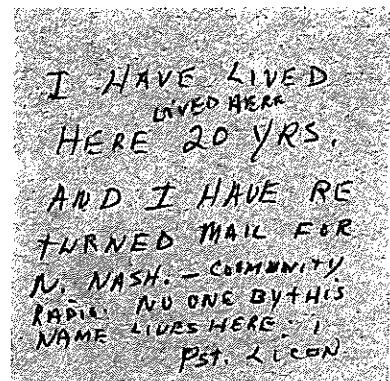 I HAVE LIVED
LIVED HERE
HERE 20 YRS.
AND I HAVE RE
TURNED MAIL FOR
N. NASH. – COMMUNITY
RADIO. NO ONE BY THIS
NAME LIVES HERE.
Pst. LICON